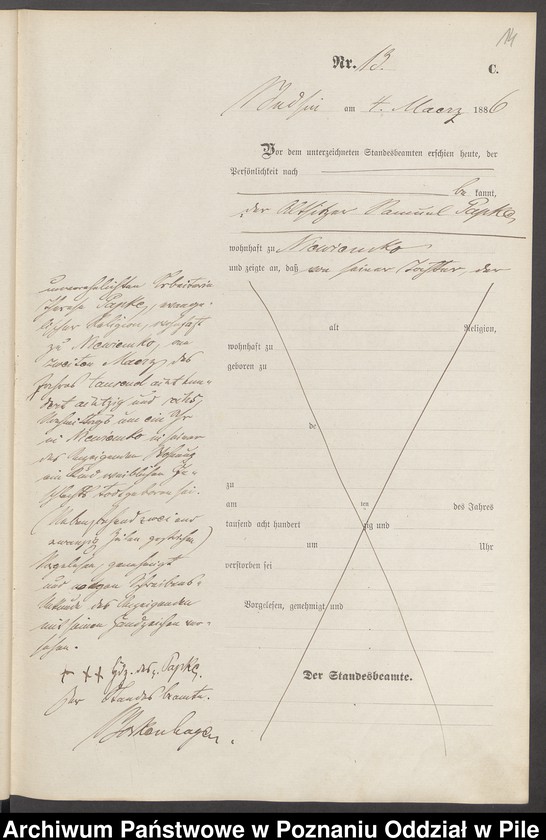 14
Nr. 13.
C.
Budsin am 4. Maerz 1886
Vor dem unterzeichneten Standesbeamten erschien heute, der
Persönlichkeit nach
be kannt,
der Altsitzer Samuel Papke,
wohnhaft zu
und zeigte an, daß von seiner Tochter, der
unverehelichten Arbeiterin
Papke, evange-
lischer Religion, wohnhaft
zu am
zweiten Maerz des
Jahres tausend acht hun-
dert achtzig und sechs,
um ein Uhr
in in seiner
des Anzeigenden Wohnung
ein Kind weiblichen Ge-
schlechts todtgeboren sei.
(Nebenstehend zwei und
zwanzig Zeilen gestrichen)
Vorgelesen, genehmigt
und wegen Schreibens-
Unkunde des Anzeigenden
mit seinen Handzeichen ver-
sehen.
+ + + Hdz. des Papke.
Der Standesbeamte.
Borkenhagen.
alt Religion,
wohnhaft zu
geboren zu
de
zu
am ten des Jahres
tausend acht hundert zig und
um Uhr
verstorben sei
Vorgelesen, genehmigt und
Der Standesbeamte.
Archiwum Państwowe w Poznaniu Oddział w Pile